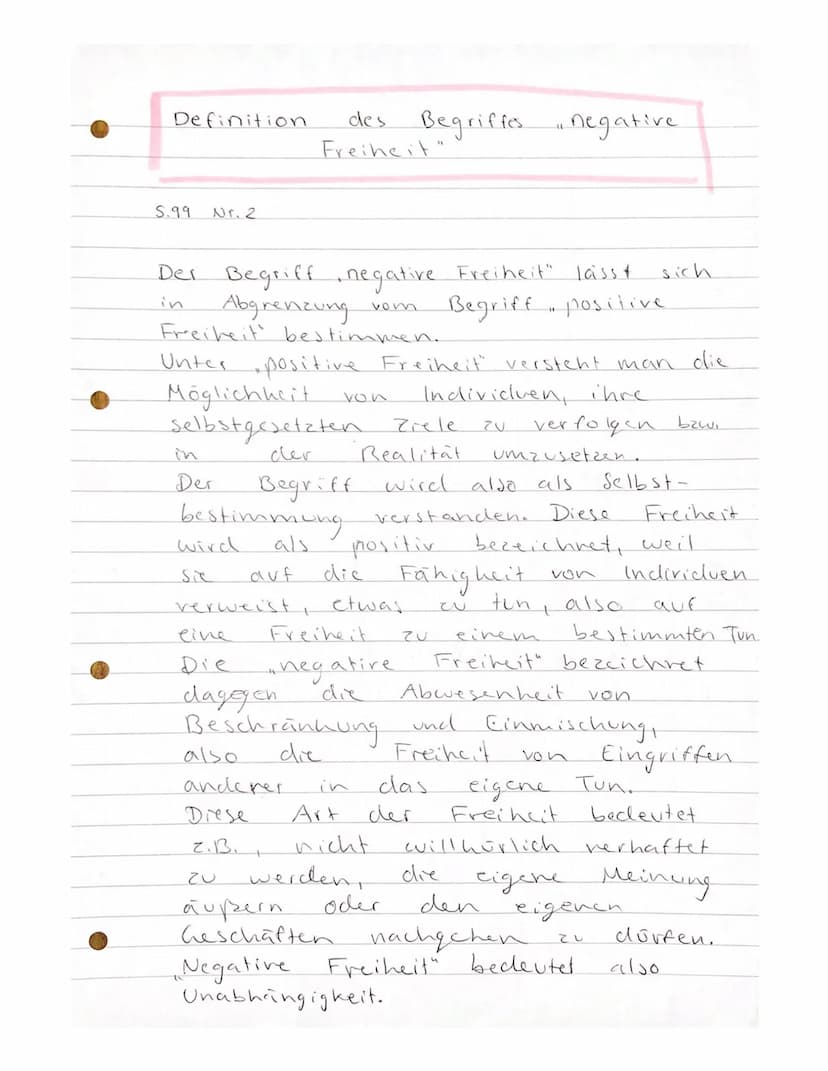 Definition des Begriffes „negative
Freiheit"
S.99 Nr. 2
Der Begriff „negative Freiheit" lässt sich
in Abgrenzung vom Begriff „positive
Freiheit" bestimmen.
Unter „positive Freiheit" versteht man die
Möglichkeit von Individuen, ihre
selbstgesetzten Ziele zu verfolgen bzw.
in der Realität umzusetzen.
Der Begriff wird also als Selbst-
bestimmung verstanden. Diese Freiheit
wird als positiv bezeichnet, weil
sie auf die Fähigkeit von Individuen
verweist, etwas zu tun, also auf
eine Freiheit zu einem bestimmten Tun
Die „negative Freiheit" bezeichnet
dagegen die Abwesenheit von
Beschränkung und Einmischung,
also die Freiheit von Eingriffen
anderer in das eigene Tun.
Diese Art der Freiheit bedeutet
z.B., nicht willkürlich verhaftet
zu werden, die eigene Meinung
äußern oder den eigenen
Geschäften nachgehen zu dürfen.
„Negative Freiheit" bedeutet also
Unabhängigkeit.